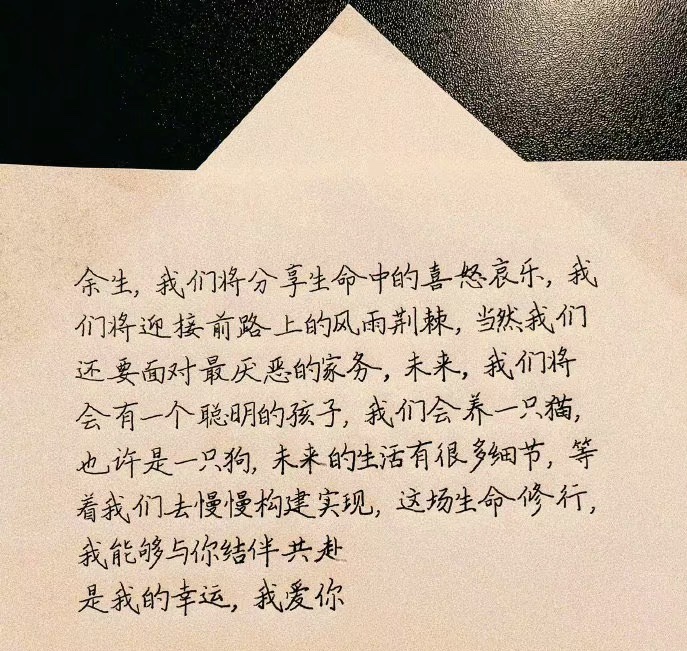 余生，我们将分享生命中的喜怒哀乐，我
们将迎接前路上的风雨荆棘，当然我们
还要面对最厌恶的家务，未来，我们将
会有一个聪明的孩子，我们会养一只猫，
也许是一只狗，未来的生活有很多细节，等
着我们去慢慢构建实现，这场生命修行，
我能够与你结伴共赴
是我的幸运，我爱你